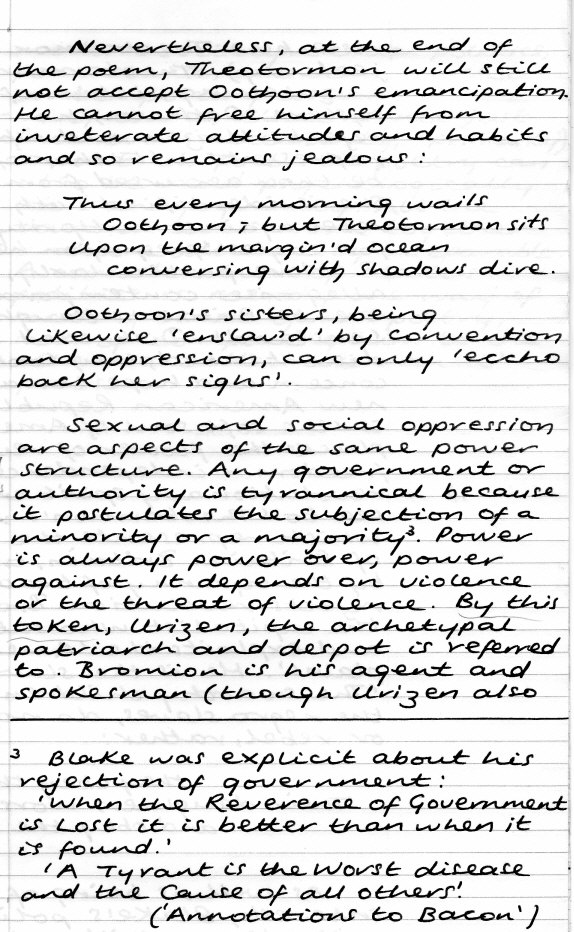 Nevertheless, at the end of
the poem, Theotormon will still
not accept Oothoon's emancipation.
He cannot free himself from
inveterate attitudes and habits
and so remains jealous :
Thus every morning wails
Oothoon ; but Theotormon sits
Upon the margin'd ocean
conversing with shadows dire.
Oothoon's sisters, being
likewise 'enslav'd' by convention
and oppression, can only 'eccho
back her sighs'.
Sexual and social oppression
are aspects of the same power
structure. Any government or
authority is tyrannical because
it postulates the subjection of a
minority or a majority³. Power
is always power over, power
against. It depends on violence
or the threat of violence. By this
token, Urizen, the archetypal
patriarch and despot is referred
to. Bromion is his agent and
spokesman (though Urizen also
³ Blake was explicit about his
rejection of government :
'When the Reverence of Government
is Lost it is better than when it
is found.'
'A Tyrant is the Worst disease
and the Cause of all others.'
('Annotations to Bacon')